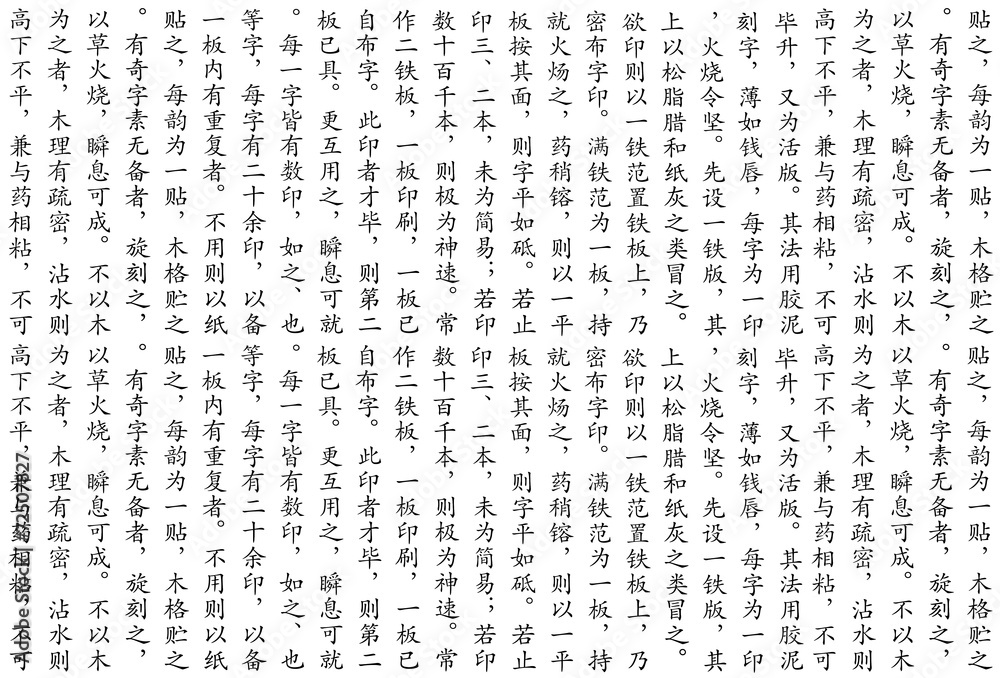 贴之，每韵为一贴，木格贮之
。有奇字素无备者，旋刻之，
以草火烧，瞬息可成。不以木
为之者，木理有疏密，沾水则
高下不平，兼与药相粘，不可
毕升，又为活版。其法用胶泥
刻字，薄如钱唇，每字为一印
，火烧令坚。先设一铁版，其
上以松脂腊和纸灰之类冒之。
欲印则以一铁范置铁板上，乃
密布字印。满铁范为一板，持
就火炀之，药稍镕，则以一平
板按其面，则字平如砥。若止
印三、二本，未为简易；若印
数十百千本，则极为神速。常
作二铁板，一板印刷，一板已
自布字。此印者才毕，则第二
板已具。更互用之，瞬息可就
。每一字皆有数印，如之、也
等字，每字有二十余印，以备
一板内有重复者。不用则以纸
贴之，每韵为一贴，木格贮之
。有奇字素无备者，旋刻之，
以草火烧，瞬息可成。不以木
为之者，木理有疏密，沾水则
高下不平，兼与药相粘，不可
贴之，每韵为一贴，木格贮之
。有奇字素无备者，旋刻之，
以草火烧，瞬息可成。不以木
为之者，木理有疏密，沾水则
高下不平，兼与药相粘，不可
毕升，又为活版。其法用胶泥
刻字，薄如钱唇，每字为一印
，火烧令坚。先设一铁版，其
上以松脂腊和纸灰之类冒之。
欲印则以一铁范置铁板上，乃
密布字印。满铁范为一板，持
就火炀之，药稍镕，则以一平
板按其面，则字平如砥。若止
印三、二本，未为简易；若印
数十百千本，则极为神速。常
作二铁板，一板印刷，一板已
自布字。此印者才毕，则第二
板已具。更互用之，瞬息可就
。每一字皆有数印，如之、也
等字，每字有二十余印，以备
一板内有重复者。不用则以纸
贴之，每韵为一贴，木格贮之
。有奇字素无备者，旋刻之，
以草火烧，瞬息可成。不以木
为之者，木理有疏密，沾水则
高下不平，兼与药相粘，不可
Adobe Stock | #2507627